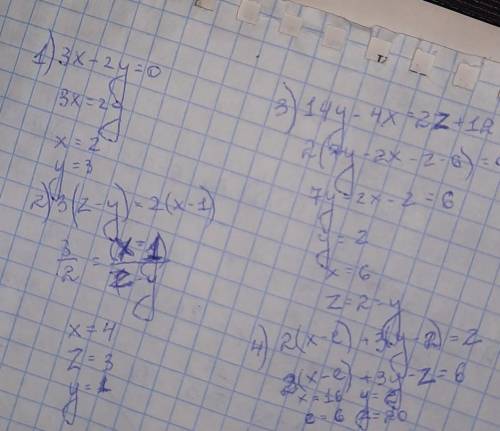 1) 3x - 2y = 0
3x = 2y
x = 2
y = 3
2) 3(z - y) = 2(x - 1)
3/2 = (x = 1)/(z - y)
x = 4
z = 3
y = 1
3) 14y - 4x = 2z + 12
2(7y - 2x - z - 6) =
7y = 2x - 2 = 6
y = 2
x = 6
z = 2 - y
4) 2(x - 2) + 3(y - 2) = z
2(x - 2) + 3y - z = 6
x = 16 y =
= 6 = 20